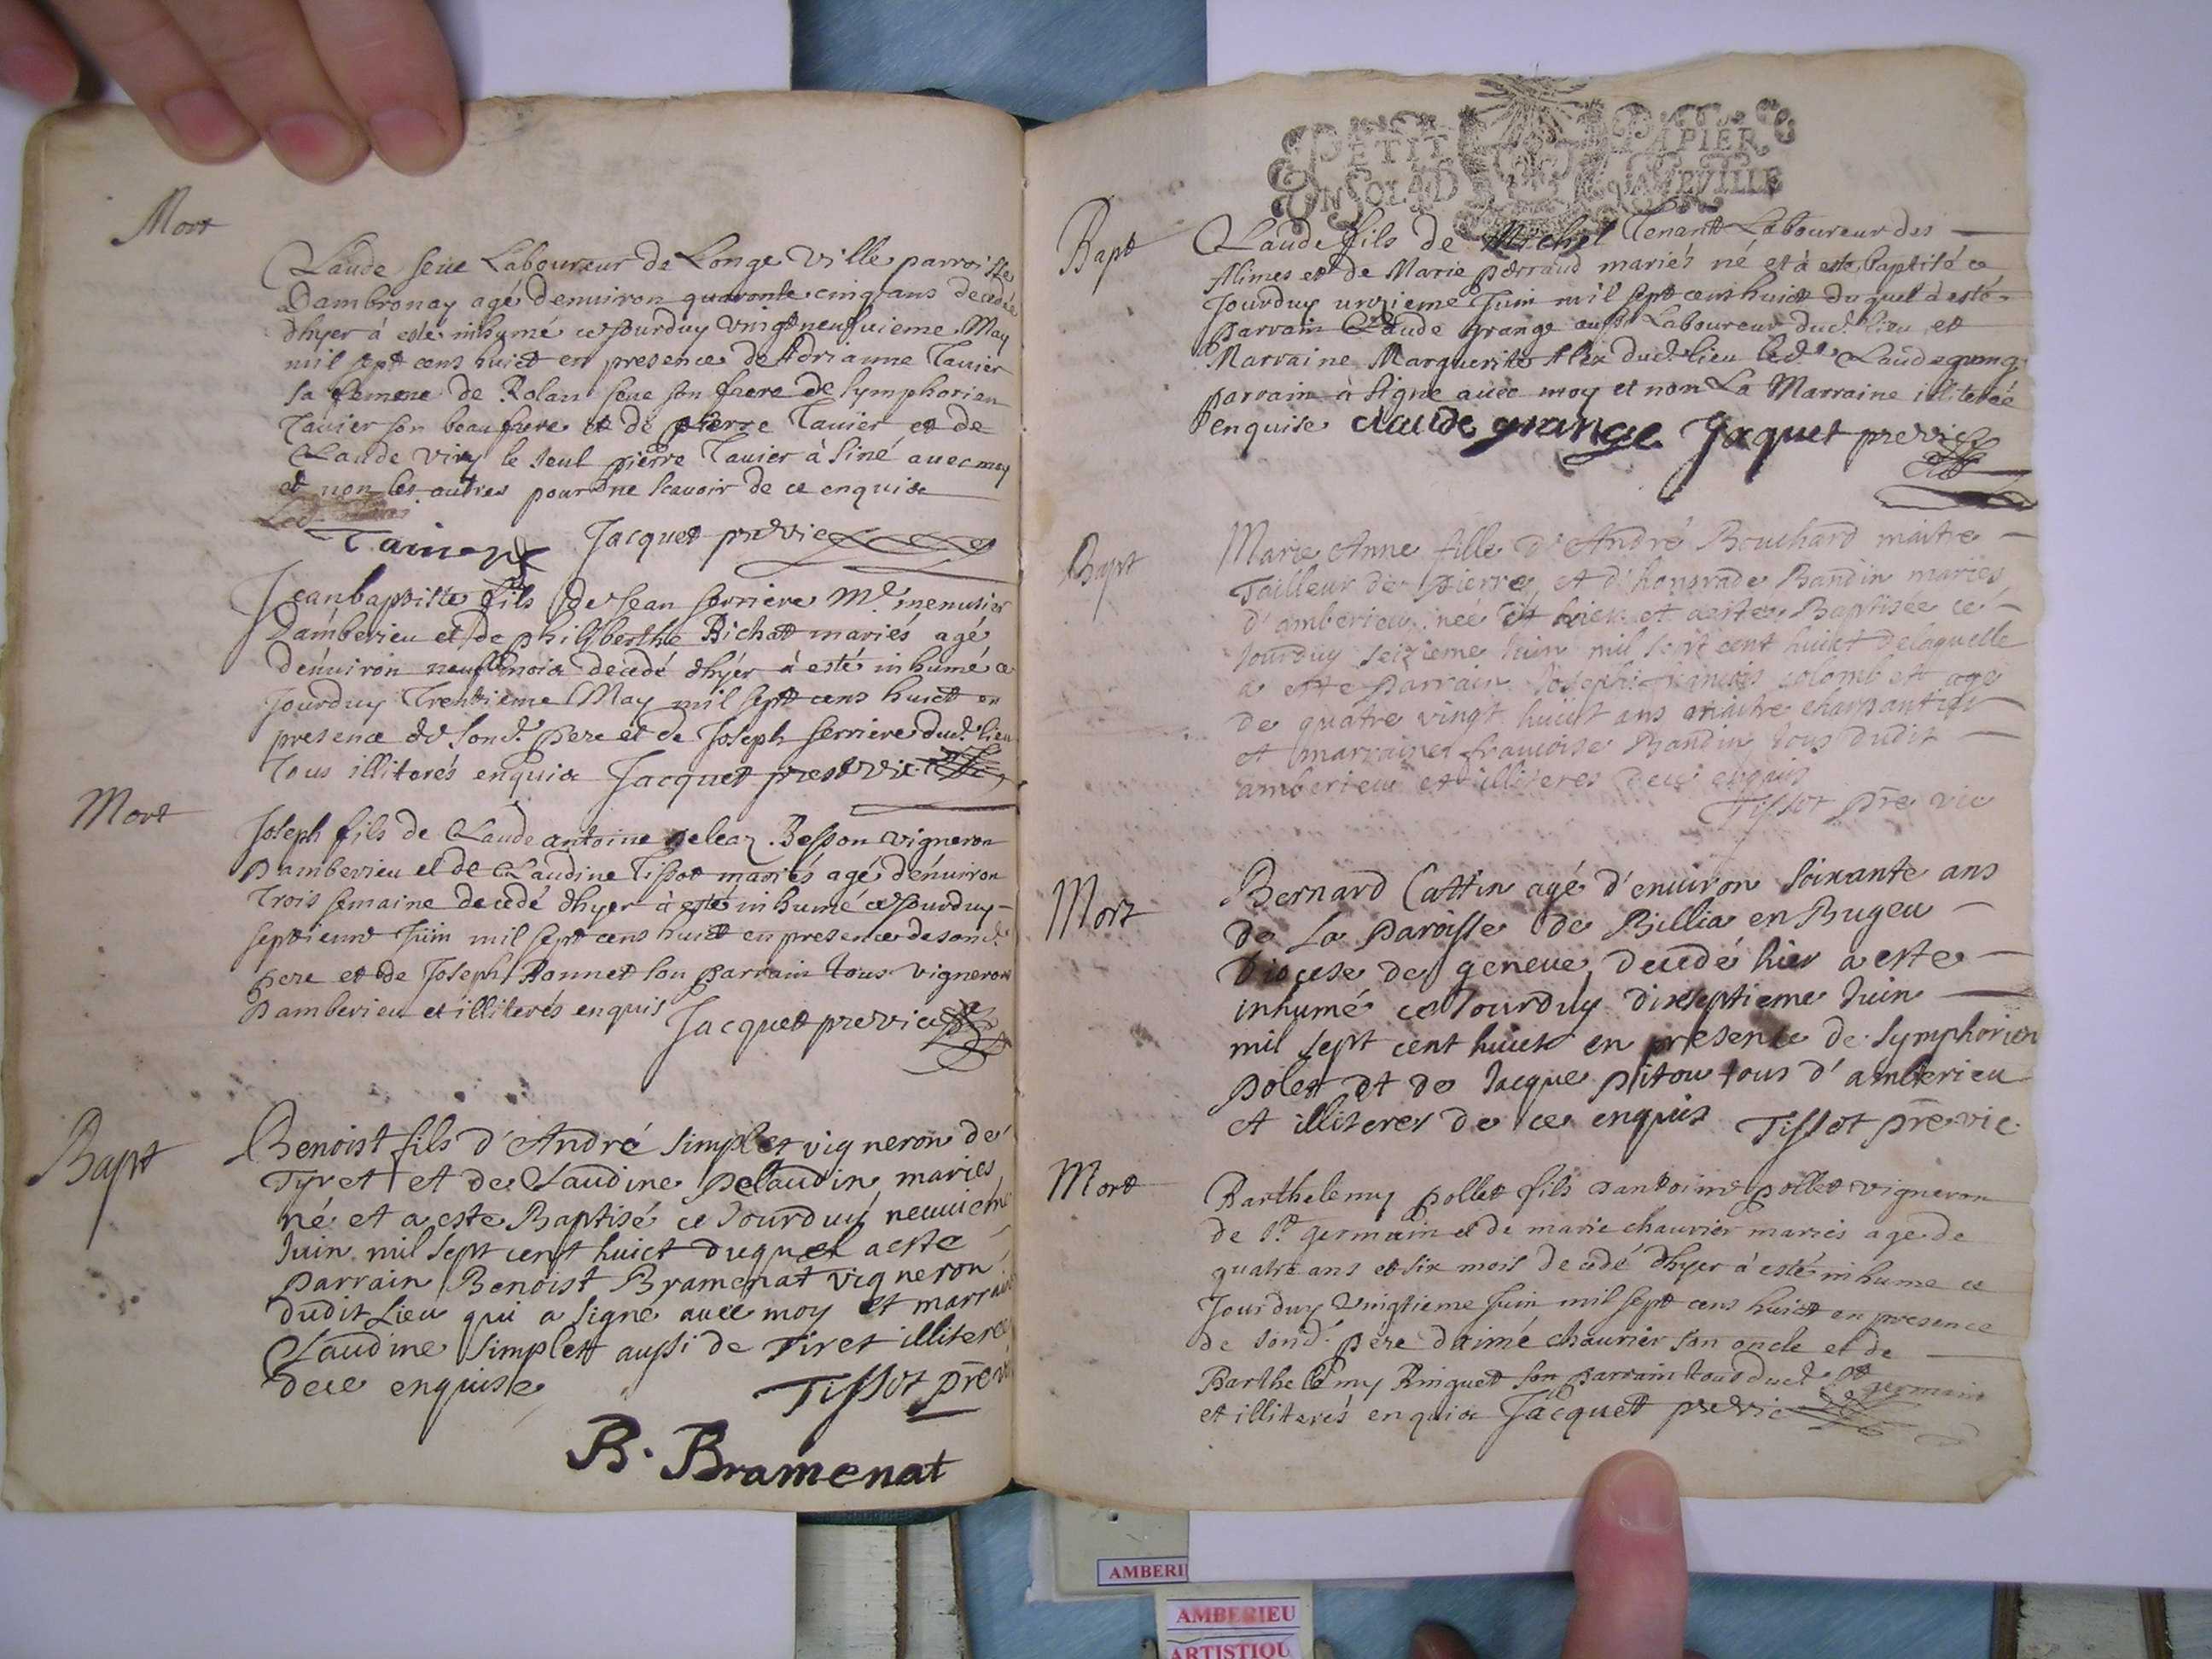 Mort
Claude seue Laboureur de Longe Ville parroisse
Dambronay agé denuiron quarante cinq ans decedée
dhyer à esté inhumé ce Jourduy vingt neufuieme May
mil sept cens huict en presence de Adrianne Tauier
sa femme de Rolan seue son frere de symphorien
Tauier son beaufrere et de pierre Tauier et de
Claude viry le seul pierre Tauier à siné auec moy
et non les autres pour ne scauoir de ce enquise
Jacquet pre vic
Jeanbaptiste fils de Jean serriere Me menusier
Damberieu et de philiberthe Richatt mariés agé
denuiron neuf mois decedé dhyér à esté inhumé ce
Jourduy Trentieme May mil sept cens huict en
presence de Sond. pere et de Joseph serriere dud. lieu
Tous illiterés enquis Jacquet prest vic
Mort
Joseph fils de Claude antoine peleaz Besson vigneron
Damberieu et de Claudine Tissot mariés agé dénuiron
Trois semaine decedé dhyer à esté inhumé ce Jourduy
septieme Juin mil sept cens huict en presence de sond.
pere et de Joseph Bonnet son parrain tous vignerons
Damberieu et illiterés enquis Jacquet pre vic
Bapt
Benoist fils d'André simplet vigneron de
Tyret et de Claudine pelaudin maries
né et a este Baptisé ce Jourduy neuuieme
Juin mil sept cent huict duquel a esté
parrain Benoist Bramenat vigneron
dudit Lieu qui a signé auec moy et marraine
Claudine simplett aussi de Tiret illiteree
dece enquise Tissot pre vi
B. Bramenat
PETIT PAPIER
UN SOL LA DEMIE FEVILLE
Bapt
Claude fils de Michel Tenant Laboureur des
Alimes et de Marie perraud mariés né et à esté baptisé ce
Jourduy unzieme Juin mil sept cens huict duquel a esté
parrain Claude grange aussi Laboureur dud. lieu et
Marraine Marguerite Alex dud. lieu led. Claude grange
parrain à signe auec moy et non La Marraine illiterée
enquise claude grange Jaquet pre vic
Bapt
Marie Anne fille d'André Bouchard maitre
Tailleur de pierre et d'honorade Bandin mariés
d'amberieu née hier et a este Baptisée ce
Jourduy seizieme Juin mil sept cent huict de laquelle
a este parrain Joseph francois colomb agé
de quatre vingt huict ans maitre charpantier
et marraine francoise Bandin tous dudit
amberieu et illiteres dece enquis
Tissot pre vic
Mort
Bernard Cattin agé d'enuiron soixante ans
de La paroisse de Billia en Bugeu
Diocese de geneue decedé hier a este
inhumé ce Jourduy dixseptieme Juin
mil sept cent huict en presence de symphorien
polet et de Jacque pitou tous d'amberieu
et illiteres de ce enquis Tissot pre vic
Mort
Barthelemy pollet fils dantoine pollet vigneron
de St germain et de marie chaurier mariés age de
quatre ans et six mois decedé dhyer à esté inhume ce
Jourduy vingtieme Juin mil sept cens huict en presence
de sond. pere daimé chaurier son oncle et de
Barthelemy Ringuet son parrain tous dud. St germain
et illiterés enquis Jacquett pre vic
AMBERI
AMBERIEU
ARTISTIQU